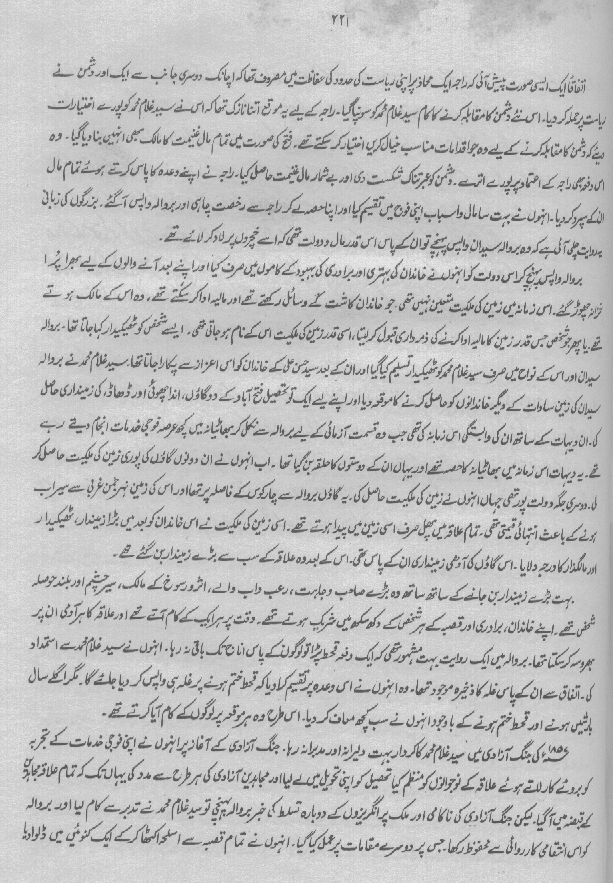 ۲۲۱
اتفاقاً ایک ایسی صورت پیش آئی کہ راجہ ایک محاذ پر اپنی ریاست کی حدود کی حفاظت میں مصروف تھا کہ اچانک دوسری جانب سے ایک اور دشمن نے
ریاست پر حملہ کر دیا۔ اس نئے دشمن کا مقابلہ کرنے کا کام سید غلام محمد کو سونپا گیا۔ راجہ کے لیے یہ موقع اتنا نازک تھا کہ اس نے سید غلام محمد کو پورے اختیارات
دیئے کہ دشمن کا مقابلہ کرنے کے لیے وہ جو اقدامات مناسب خیال کریں اختیار کر سکتے تھے۔ فتح کی صورت میں تمام مال غنیمت کا مالک بھی انہیں بنا دیا گیا۔ وہ
اس دفعہ بھی راجہ کے اعتماد پر پورے اترے۔ دشمن کو عبرتناک شکست دی اور بے شمار مال غنیمت حاصل کیا۔ راجہ نے اپنے وعدہ کا پاس کرتے ہوئے تمام مال
ان کے سپرد کر دیا۔ انہوں نے بہت سا مال و اسباب اپنی فوج میں تقسیم کیا اور اپنا حصہ لے کر راجہ سے رخصت چاہی اور بروالہ واپس آ گئے۔ بزرگوں کی زبانی
یہ روایت چلی آئی ہے کہ وہ بروالہ سیدان واپس پہنچے تو ان کے پاس اس قدر مال و دولت تھی کہ اسے خچروں پر لاد کر لائے تھے۔
بروالہ واپس پہنچ کر اس دولت کو انہوں نے خاندان کی بہتری اور برادری کی بہبود کے کاموں میں صرف کیا اور اپنے بعد آنے والوں کے لیے بھرا پُرا
خزانہ چھوڑ گئے۔ اس زمانہ میں زمین کی ملکیت متعین نہیں تھی۔ جو خاندان کاشت کے وسائل رکھتے تھے اور مالیہ ادا کر سکتے تھے، وہ اس کے مالک ہوتے
تھے۔ یا پھر جو شخص جس قدر زمین کا مالیہ ادا کرنے کی ذمہ داری قبول کر لیتا، اسی قدر زمین کی ملکیت اس کے نام ہو جاتی تھی۔ ایسے شخص کو ٹھیکیدار کہا جاتا تھا۔ بروالہ
سیدان اور اس کے نواح میں صرف سید غلام محمد کو ٹھیکیدار تسلیم کیا گیا اور ان کے بعد سید حسن علی کے خاندان کو اس اعزاز سے پکارا جاتا تھا۔ سید غلام محمد نے بروالہ
سیدان کی زمین سادات کے دیگر خاندانوں کو حاصل کرنے کا موقعہ دیا اور اپنے لیے ایک تو تحصیل فتح آباد کے دو گاؤں، انداچھوئی اور ڈھانڈ، کی زمینداری حاصل
کی۔ ان دیہات کے ساتھ ان کی وابستگی اس زمانہ کی تھی جب وہ قسمت آزمائی کے لیے بروالہ سے نکل کر بھاٹیانہ میں کچھ عرصہ فوجی خدمات انجام دیتے رہے
تھے۔ یہ دیہات اس زمانہ میں بھاٹیانہ کا حصہ تھے اور یہاں ان کے دوستوں کا حلقہ بن گیا تھا۔ اب انہوں نے ان دونوں گاؤں کی پوری زمین کی ملکیت حاصل کر
لی۔ دوسری جگہ دولت پور تھی جہاں انہوں نے زمین کی ملکیت حاصل کی۔ یہ گاؤں بروالہ سے چار کوس کے فاصلہ پر تھا اور اس کی زمین نہر جمن غربی سے سیراب
ہونے کے باعث انتہائی قیمتی تھی۔ تمام علاقہ میں پھل صرف اسی زمین میں پیدا ہوتے تھے۔ اسی زمین کی ملکیت نے اس خاندان کو بعد میں بڑا زمیندار، ٹھیکیدار
اور مالگذار کا درجہ دلایا۔ اس گاؤں کی آدھی زمینداری ان کے پاس تھی۔ اس کے بعد وہ علاقہ کے سب سے بڑے زمیندار بن گئے تھے۔
بہت بڑے زمیندار بن جانے کے ساتھ ساتھ وہ بڑے صاحب وجاہت، رعب داب والے، اثر و رسوخ کے مالک، سیر چشم اور بلند حوصلہ
شخص تھے۔ اپنے خاندان، برادری اور قصبہ کے ہر شخص کے دکھ سکھ میں شریک ہوتے تھے۔ وقت پر ہر ایک کے کام آتے تھے اور علاقہ کا ہر آدمی ان پر
بھروسہ کر سکتا تھا۔ بروالہ میں ایک روایت بہت مشہور تھی کہ ایک دفعہ قحط پڑا تو لوگوں کے پاس اناج تک باقی نہ رہا۔ انہوں نے سید غلام محمد سے استمداد
کی۔ اتفاق سے ان کے پاس غلہ کا ذخیرہ موجود تھا۔ وہ انہوں نے اس وعدہ پر تقسیم کرا دیا کہ قحط ختم ہونے پر غلہ ہی واپس کر دیا جائے گا۔ مگر اگلے سال
بارشیں ہونے اور قحط ختم ہونے کے باوجود انہوں نے سب کچھ معاف کر دیا۔ اس طرح وہ ہر موقعہ پر لوگوں کے کام آیا کرتے تھے۔
۱۸۵۷ء کی جنگ آزادی میں سید غلام محمد کا کردار بہت دلیرانہ اور مدبرانہ رہا۔ جنگ آزادی کے آغاز پر انہوں نے اپنی فوجی خدمات کے تجربہ
کو بروئے کار لاتے ہوئے علاقہ کے نوجوانوں کو منظم کیا تحصیل کو اپنی تحویل میں لے لیا اور مجاہدین آزادی کی ہر طرح سے مدد کی یہاں تک کہ تمام علاقہ مجاہدین
کے قبضہ میں آ گیا۔ لیکن جنگ آزادی کی ناکامی اور ملک پر انگریزوں کے دوبارہ تسلط کی خبر بروالہ پہنچی تو سید غلام محمد نے تدبر سے کام لیا اور بروالہ
کو اس انتقامی کارروائی سے محفوظ رکھا۔ جس پر دوسرے مقامات پر عمل کیا گیا۔ انہوں نے تمام قصبہ سے اسلحہ اکٹھا کر کے ایک کنوئیں میں ڈلوا دیا